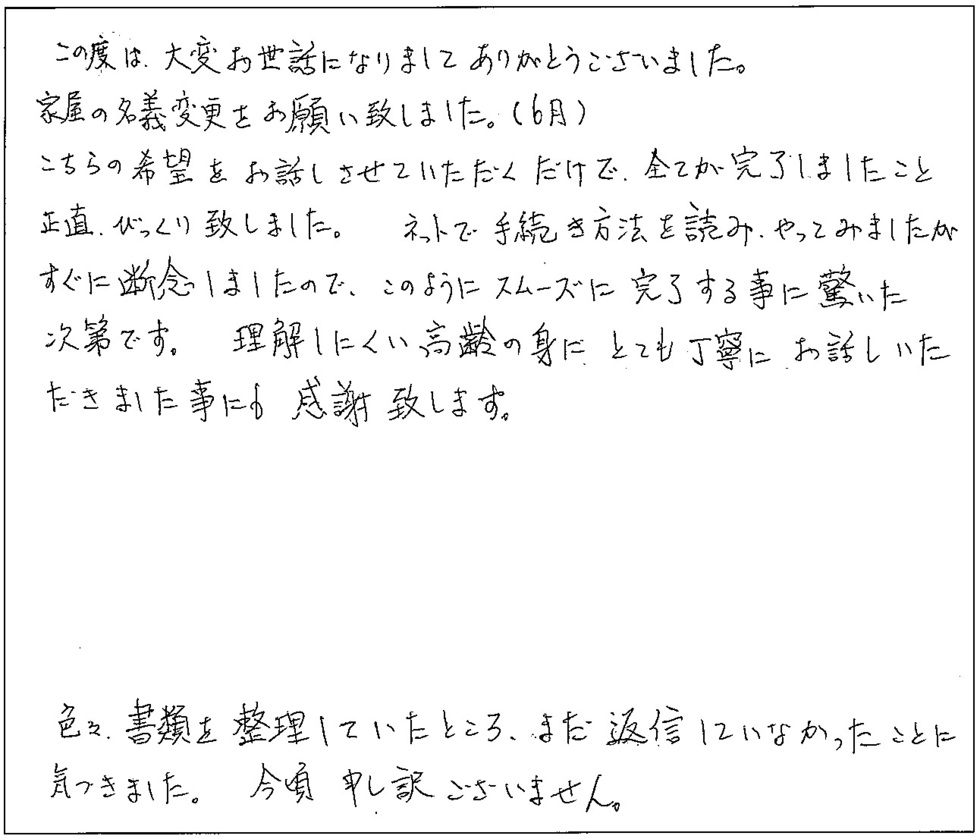 この度は、大変お世話になりましてありがとうございました。
家屋の名義変更をお願い致しました。(6月)
こちらの希望をお話しさせていただくだけで、全てが完了しましたこと
正直、びっくり致しました。 ネットで手続き方法を読み、やってみましたが
すぐに断念しましたので、このようにスムーズに完了する事に驚いた
次第です。 理解しにくい高齢の身にとても丁寧にお話しいた
だきました事にも感謝致します。
色々、書類を整理していたところ、まだ返信していなかったことに
気づきました。 今頃申し訳ございません。